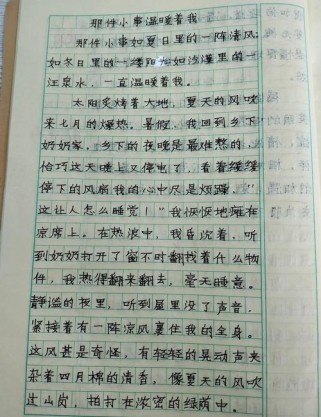 那件小事温暖着我
那件小事如夏日里的一阵清风;
如冬日里的一缕阳光如沙漠里的一
汪泉水，一直温暖着我。
太阳炙烤着大地，夏天的风吹
来七月的燥热。暑假，我回到乡下
奶奶家。乡下的夜晚是最难熬的，
恰巧这天晚上又停电了，看着缓缓
停下的风扇我的心中尽是烦躁，“
这让人怎么睡觉！”我恹恹地瘫在
凉席上。在热浪中，我昏沉着，听
到奶奶打开了
不时翻找着什么物
件，我热得翻来翻去，毫无睡意。
静谧的夜里，听到屋里没了声音，
紧接着有一阵凉风裹住我的全身。
这风甚是奇怪，有轻轻的晃动声夹
杂着四月棉的清香，像夏天的风吹
过山岗，拍打在浓密的绿荫中。